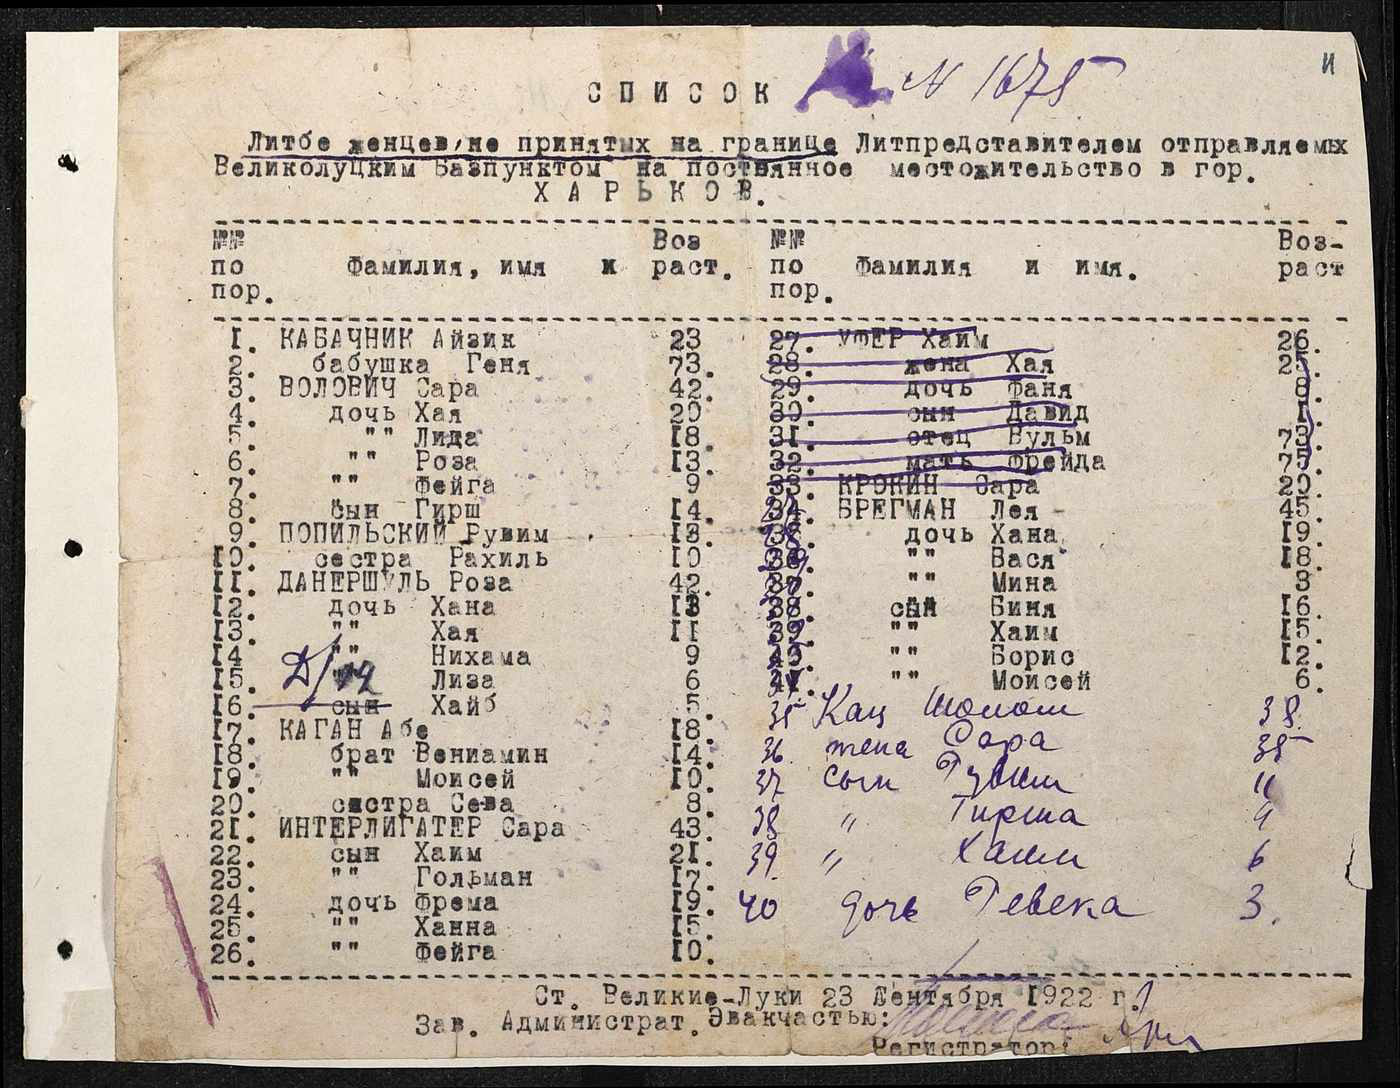 И
СПИСОК № 1675
Литбе женцев, не принятых на границе Литпредставителем отправляемых
Великолуцким Базпунктом на постоянное местожительство в гор.
ХАРЬКОВ.
№№ по пор. Фамилия, имя и Воз раст.
I. КАБАЧНИК Айзик 23
2. бабушка Геня 73.
3. ВОЛОВИЧ Сара 42.
4. дочь Хая 20
5. "" Лида I8.
6. "" Роза I3.
7. "" Фейга 9
8. сын Гирш I4.
9. ПОПИЛЬСКИЙ Рувим I3.
I0. сестра Рахиль I0
II. ДАНЕРШУЛЬ Роза 42.
I2. дочь Хана I3
I3. "" Хая II
I4. "" Нихама 9
I5. Лиза 6
I6. сын Хайб 5.
I7. КАГАН Абе I8.
I8. брат Вениамин I4.
I9. "" Моисей I0.
20. сестра Сева 8.
2I. ИНТЕРЛИГАТЕР Сара 43.
22. сын Хаим 2I.
23. "" Гольман I7.
24. дочь Фрема I9.
25. "" Ханна I5.
26. "" Фейга I0.
№№ по пор. Фамилия и имя. Воз-раст
27. УФЕР Хаим 26.
28. жена Хая 25
29. дочь Фаня 8
30. сын Давид I.
3I. отец Вульм 73.
32. мать Фрейда 75.
33. КРОКИН Сара 20.
34. БРЕГМАН Лея 45.
35. дочь Хана I9
36. "" Вася I8.
37. "" Мина 3
38. сын Биня I6.
39. "" Хаим I5.
40. "" Борис I2.
4I. "" Моисей 6.
35 Кац 38.
36 жена Сара 35
37 сын 11
38 " Гирша 9
39. " Хаим 6
40 дочь Ревека 3.
Ст. Великие-Луки 23 Сентября I922 г.
Зав. Администрат. Эвакчастью:
Регистратор: